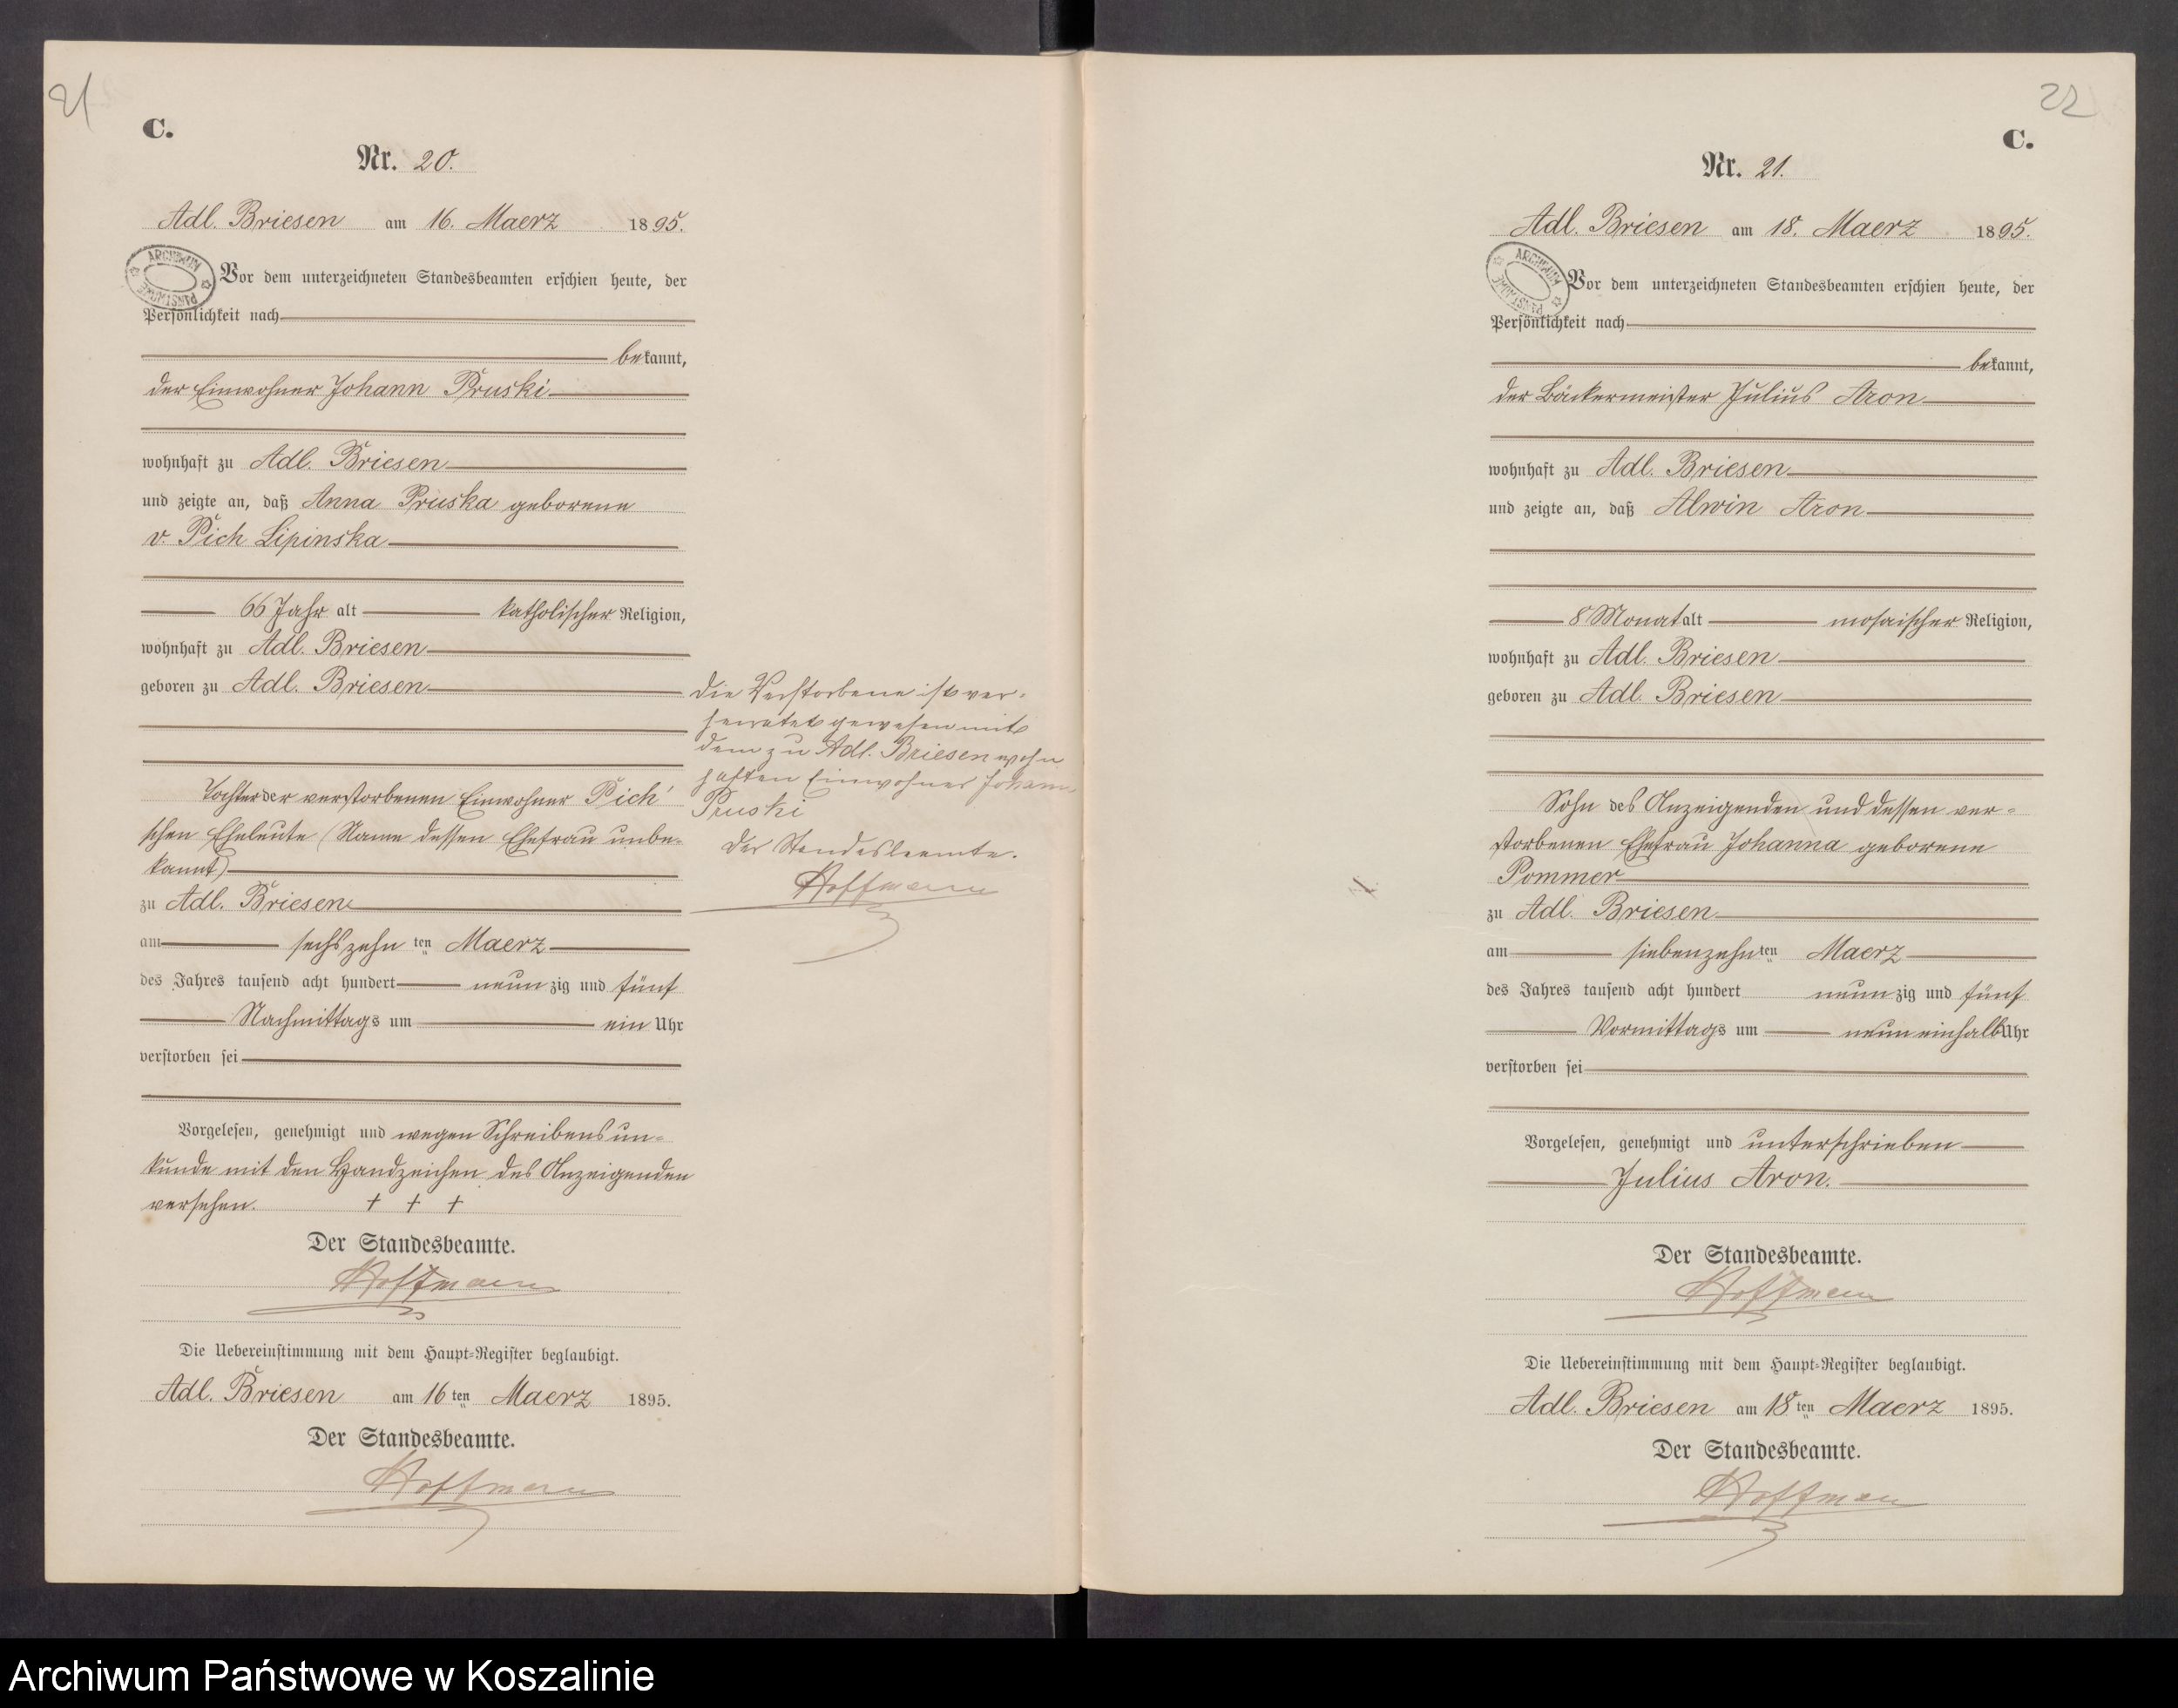 21
C.
Nr. 20.
Adl. Briesen am 16. Maerz 1895.
ARCHIWUM PAŃSTWOWE
Vor dem unterzeichneten Standesbeamten erschien heute, der
Persönlichkeit nach
bekannt,
der Einwohner Johann Pruski
wohnhaft zu Adl. Briesen
und zeigte an, daß Anna Pruska geborene
v. Pich Lipinska
66 Jahr alt katholischer Religion,
wohnhaft zu Adl. Briesen
geboren zu Adl. Briesen
Tochter der verstorbenen Einwohner Pich'
schen Eheleute (Name dessen Ehefrau unbe-
kannt)
zu Adl. Briesen
am sechszehn ten Maerz
des Jahres tausend acht hundert neunzig und fünf
Nachmittags um ein Uhr
verstorben sei
Vorgelesen, genehmigt und wegen Schreibensun-
kunde mit den Handzeichen des Anzeigenden
versehen. + + +
Der Standesbeamte.
Hoffmann
Die Uebereinstimmung mit dem Haupt-Register beglaubigt.
Adl. Briesen am 16ten Maerz 1895.
Der Standesbeamte.
Hoffmann
Die Verstorbene ist ver-
heiratet gewesen mit
dem zu Adl. Briesen wohn
haften Einwohner Johann
Pruski
Der Standesbeamte.
Hoffmann
22
C.
Nr. 21.
Adl. Briesen am 18. Maerz 1895.
ARCHIWUM PAŃSTWOWE
Vor dem unterzeichneten Standesbeamten erschien heute, der
Persönlichkeit nach
bekannt,
der Bäckermeister Julius Aron
wohnhaft zu Adl. Briesen
und zeigte an, daß Alwin Aron
8 Monat alt mosaischer Religion,
wohnhaft zu Adl. Briesen
geboren zu Adl. Briesen
Sohn des Anzeigenden und dessen ver-
storbenen Ehefrau Johanna geborene
Pommer
zu Adl. Briesen
am siebenzehnten Maerz
des Jahres tausend acht hundert neunzig und fünf
Vormittags um neuneinhalb Uhr
verstorben sei
Vorgelesen, genehmigt und unterschrieben
Julius Aron.
Der Standesbeamte.
Hoffmann
Die Uebereinstimmung mit dem Haupt-Register beglaubigt.
Adl. Briesen am 18ten Maerz 1895.
Der Standesbeamte.
Hoffmann
Archiwum Państwowe w Koszalinie